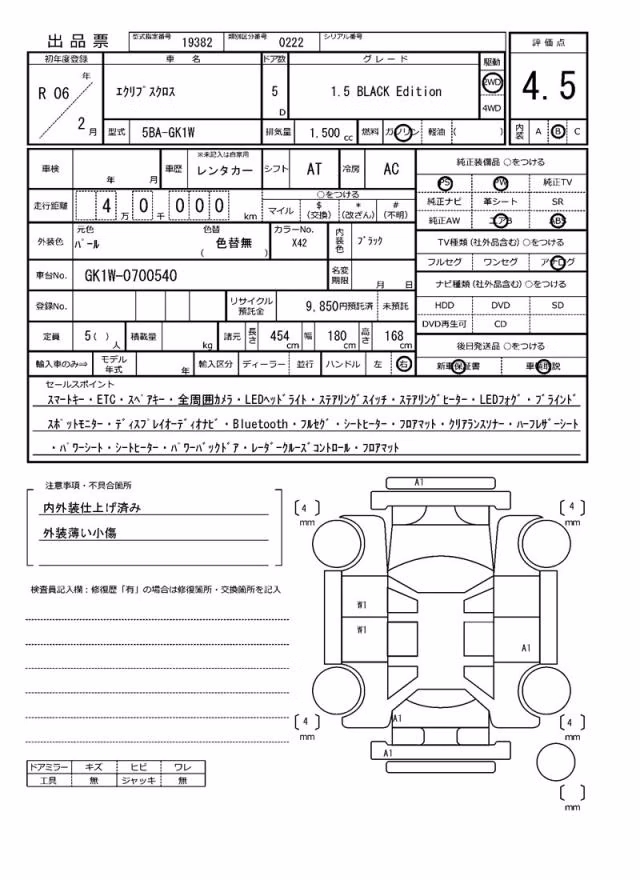 出品票 型式指定番号 19382 類別区分番号 0222 シリアル番号
初年度登録 車名 ドア数 グレード 駆動 評価点
R 06 年 2 月 エクリプスクロス 5 D 1.5 BLACK Edition 2WD 4WD 4.5
型式 5BA-GK1W 排気量 1.500 cc 燃料 ガソリン 軽油 ( ) 内装 A B C
車検 年 月 車歴 ※未記入は自家用 レンタカー シフト AT 冷房 AC 純正装備品 ○をつける
PS PW 純正TV
走行距離 4 万 0 千 0 0 0 km ○をつける マイル $ (交換) * (改ざん) # (不明) 純正ナビ 革シート SR
純正AW エアB ABS
外装色 元色 パール 色替 ( 色替無 ) カラーNo. X42 内装色 ブラック TV種類 (社外品含む) ○をつける
フルセグ ワンセグ アナログ
車台No. GK1W-0700540 名変期限 月 日 ナビ種類 (社外品含む) ○をつける
登録No. リサイクル預託金 9,850円預託済 未預託 HDD DVD SD
DVD再生可 CD
定員 5 ( ) 人 積載量 kg 諸元 長さ 454 cm 幅 180 cm 高さ 168 cm 後日発送品 ○をつける
輸入車のみ⇒ モデル年式 年 輸入区分 ディーラー 並行 ハンドル 左 右 新車保証書 車輌取説
セールスポイント
スマートキー・ETC・スペアキー・全周囲カメラ・LEDヘッドライト・ステアリングスイッチ・ステアリングヒーター・LEDフォグ・ブラインド
スポットモニター・ディスプレイオーディオナビ・Bluetooth・フルセグ・シートヒーター・フロアマット・クリアランスソナー・ハーフレザーシート
・パワーシート・シートヒーター・パワーバックドア・レーダークルーズコントロール・フロアマット
注意事項・不具合箇所
内外装仕上げ済み
外装薄い小傷
検査員記入欄：修復歴「有」の場合は修復箇所・交換箇所を記入
A1
[ 4 ] mm [ 4 ] mm
W1
W1
A1
A1
[ 4 ] mm [ 4 ] mm
A1
[ ] mm
ドアミラー キズ ヒビ ワレ
工具 無 ジャッキ 無